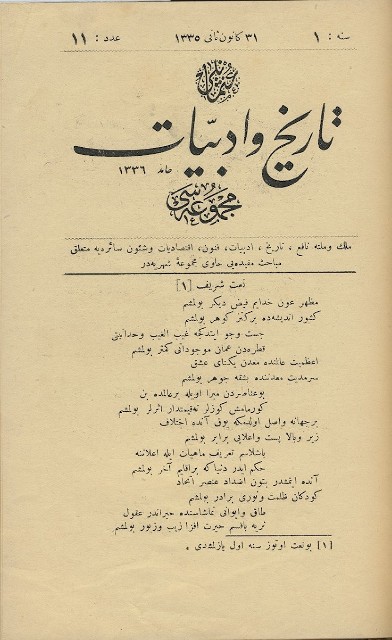 سنه : ١ ٣١ كانون ثانى ١٣٣٥ عدد : ١١
تاريخ و ادبيات
حامد ١٣٣٦
مجموعه سى
ملك وملته نافع ، تاريخ ، ادبيات ، فنون ، اقتصاديات وشئون سائره يه متعلق
مباحث مفيده يى حاوى مجموعۀ شهريه در
نعت شريف [١]
مظهر عون خدايم فيض ديكر بولمشم
كشور انديشه ده بركنز كوهر بولمشم
جست وجو ايتدكجه غيب الغيب وحدانيتى
قطره دن عمان موجوداتى كمتر بولمشم
اعظميت عالمنده معدن يكتاى عشق
سرمديت معدننده بشقه جوهر بولمشم
بوعناصردن مبرا اويله برعالمده بن
كورمامش كوزلر نه قيمتدار اثرلر بولمشم
برجهانه واصل اولدمكه يوق آنده اختلاف
زير وبالا پست واعلايى برابر بولمشم
باشلاسم تعريف ماهيات ايله اعلاننه
حكم ايدر دنيا كه براقليم آخر بولمشم
آنده ايتمشدر بتون اضداد عنصر اتحاد
كودكان ظلمت ونورى برادر بولمشم
طاق وايوانى تماشاسنده حيراندر عقول
نره يه باقسم حيرت افزا زيب وزيور بولمشم
[١] بونعت اوتوز سنه اول يازلمشدى .